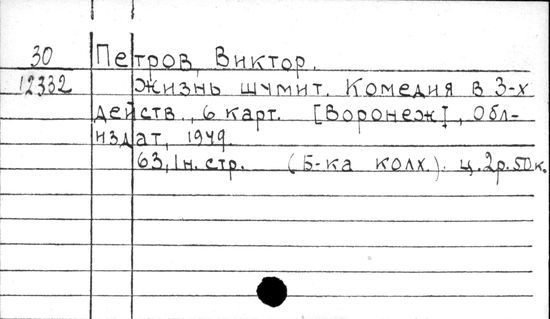 30 Петров, Виктор.
12332 Жизнь шумит. Комедия в 3-х
действ., 6 карт. [Воронеж], Обл-
издат, 1949
63,1н. стр. (Б-ка колх.). ц. 2р. 50к.